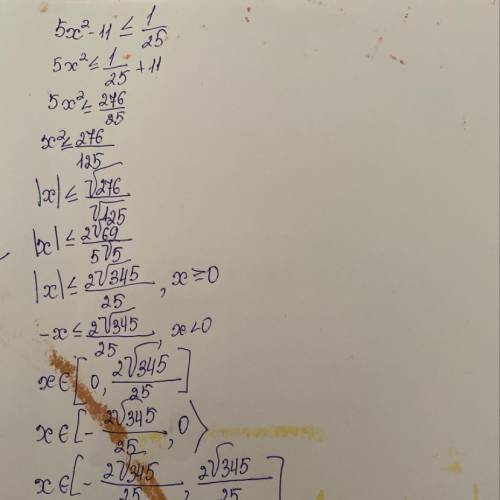 5x² - 11 ≤ 1/25
5x² ≤ 1/25 + 11
5x² ≤ 276/25
x² ≤ 276/125
|x| ≤ √276/√125
|x| ≤ 2√69/5√5
|x| ≤ 2√345/25, x ≥ 0
-x ≤ 2√345/25, x < 0
x ∈ [0, 2√345/25]
x ∈ [-2√345/25, 0⟩
x ∈ [-2√345/25, 2√345/25]